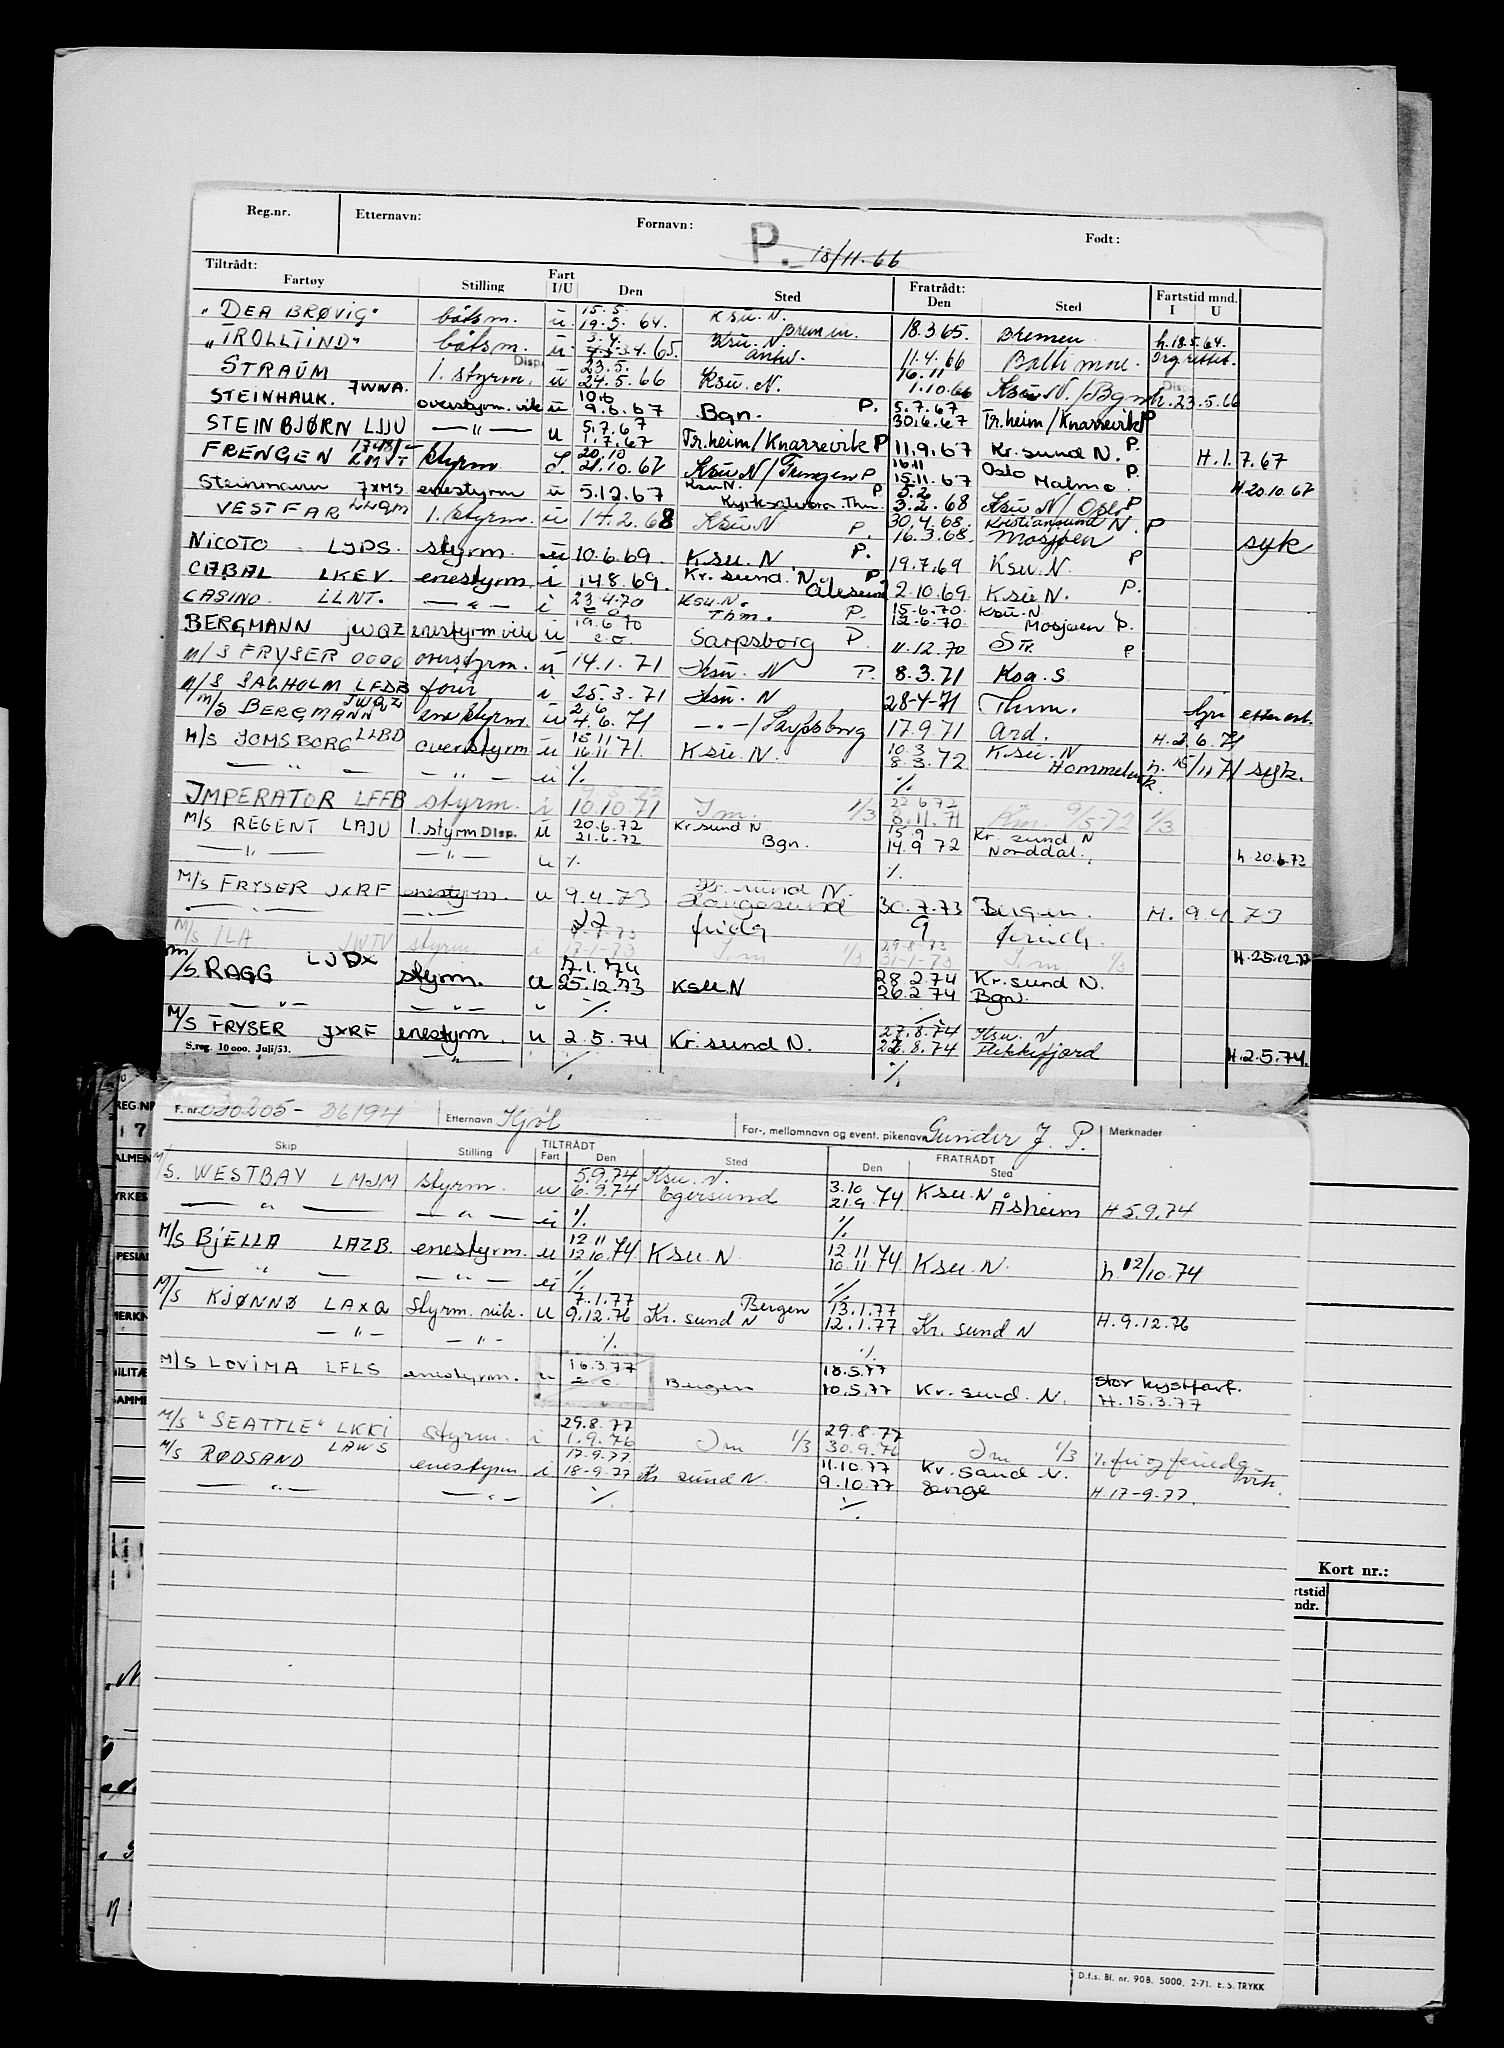 Reg.nr. Etternavn: Fornavn: Født:
P. 18/11.66
Tiltrådt: Fratrådt:
Fartøy Stilling Fart I/U Den Sted Den Sted Fartstid mnd. I U
"DEA BRØVIG" båtsm. u 15.5. 19.5. 64. Ksu. N. Bremen 18.3 65. Bremen h. 18.5.64.
"TROLLTIND" båtsm. u 3.4. 3.4.65. Ksu. N. antw. 11.4.66 Baltimore
STRAUM 1. styrm. Disp. u 23.5. 24.5.66 Ksu. N. 16.11 1.10.66 Ksu N./Bgn Disp. h. 23.5.66
STEINHAUK. JWWA. overstyrm. vik u 10.6 9.6.67 Bgn. P. 5.7.67 30.6.67 Tr.heim/Knarrevik P
STEINBJØRN LJJU — " — u 5.7.67 1.7.67 Tr.heim/Knarrevik P 11.9.67 Kr.sund N. P. H.1.7.67
FRENGEN styrm. 20.10 21.10.67 Ksu N/Frengen P 16.11 15.11.67 Oslo Malmø P. H 20.10.67
Steinmann JXMS enestyrm u 5.12.67 Ksu N. P 5.2 3.2.68 Ksu N/Oslo P
VESTFAR LLQM 1. styrm. u 14.2.68 Ksu N P. 30.4.68. 16.3.68. Kristiansund N. P Mosjøen syk
NICOTO LJPS. styrm. u 10.6.69. Ksu. N P. 19.7.69 Ksu. N. P
CABAL LKEV. enestyrm. i 14.8.69. Kr. sund. N. P. Ålesund 2.10.69. Ksu N. P.
CASINO. LLNT. — " — i 23.4.70 Ksu. N. Thm. P. 15.6.70. 12.6.70. Ksu. N Mosjøen P.
BERGMANN JWQZ enestyrm vik u 19.6 70 Sarpsborg P. 11.12.70 P
M/S FRYSER 0000 overstyrm. u 14.1.71 Ksu. N P. 8.3.71 Ksa. S.
M/S SAGHOLM LFDB four i 25.3.71 Ksu. N 28-4-71 Thm.
M/S BERGMANN JWQZ enestyrm. u 2.6 4.6.71 — " —/Sarpsborg 17.9.71 Ard. H.2.6.71
M/S JOMSBORG LLBD overstyrm u 15.11 16.11 71. Ksu. N. 10.3 8.3.72 Ksu. N Hommelvik h. 15/11 71 syk.
— " — — " — u % %
IMPERATOR LFFB styrm. i 10.10.71 Im. 1/3 22 6 72 8.11.71 9/5-72 1/3
M/S REGENT LAJU 1. styrm Disp. u 20.6.72 21.6.72 Kr.sund N Bgn. 15.9 14.9 72 Kr. sund N Norddal. h. 20.6.72
— " — — " — u % %
M/S FRYSER JXRF enestyrm. u 9.4.73 Kr. sund N. Haugesund 30.7.73 Bergen. H. 9.4.73
— " — — " —
M/S ILA JWTV styrm. i Im 1/3 29.8.73 31-1-73 Im 1/3 H.25.12.73
M/S RAGG LJDX styrm. u 7.1.74 25.12.73 Ksu N 28.2.74 26.2 74 Kr. sund N. Bgn.
— " — " " % %
M/S FRYSER JXRF enestyrm. u 2.5.74 Kr. sund N. 27.8.74 22.8.74 Ksu. N Flekkefjord H.2.5.74.
S.reg. 10 000. Juli/53. " % %
F. nr. 030205-36194 Etternavn Kjøl For-, mellomnavn og event. pikenavn Gunder J. P. Merknader
TILTRÅDT FRATRÅDT
Skip Stilling Fart Den Sted Den Sted
M/S. WESTBAY LMJM styrm. u 5.9.74 6.9.74 Ksu. N. Egersund 3.10 21.9 74 Ksu. N Åsheim H 5.9.74
— " — — " — u % %
M/S BJELLA LAZB. enestyrm. u 12 11 12 10.74 Ksu. N 12 11 10.11 74 Ksu. N. h 12/10.74
— " — — " — u % %
M/S KJØNNØ LAXQ Styrm. vik. u 7.1.77 9.12.76 Bergen Kr. sund N 13.1.77 12.1.77 Kr. sund N H.9.12.76
— " — — " — % %
M/S LOVIMA LFLS enestyrm. u 16.3.77 Bergen 18.5.77 10.5.77 Kr. sund. N. stor kystfart. H.15.3.77
M/S "SEATTLE" LKKI styrm. i 29.8.77 1.9.76 Im 1/3 29.8.77 30.9.76 Im 1/3
M/S RØDSAND LAWS enestyrm i 17.9.77 18-9.77 Kr sund N. 11.10.77 9.10.77 Kr. sand N. H 17-9.77.
— " — — " — % %
Kort nr.:
D.f.s. Bl. nr. 908. 5000. 2-71. E. S. TRYKK